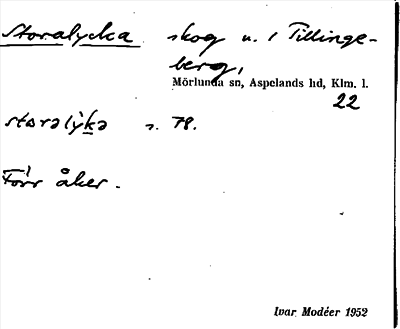 Storalycka skog u. / Tillinge-
berg,
Mörlunda sn, Aspelands hd, Klm. l.
22
s. 78.
Förr åker.
Ivar Modéer 1952